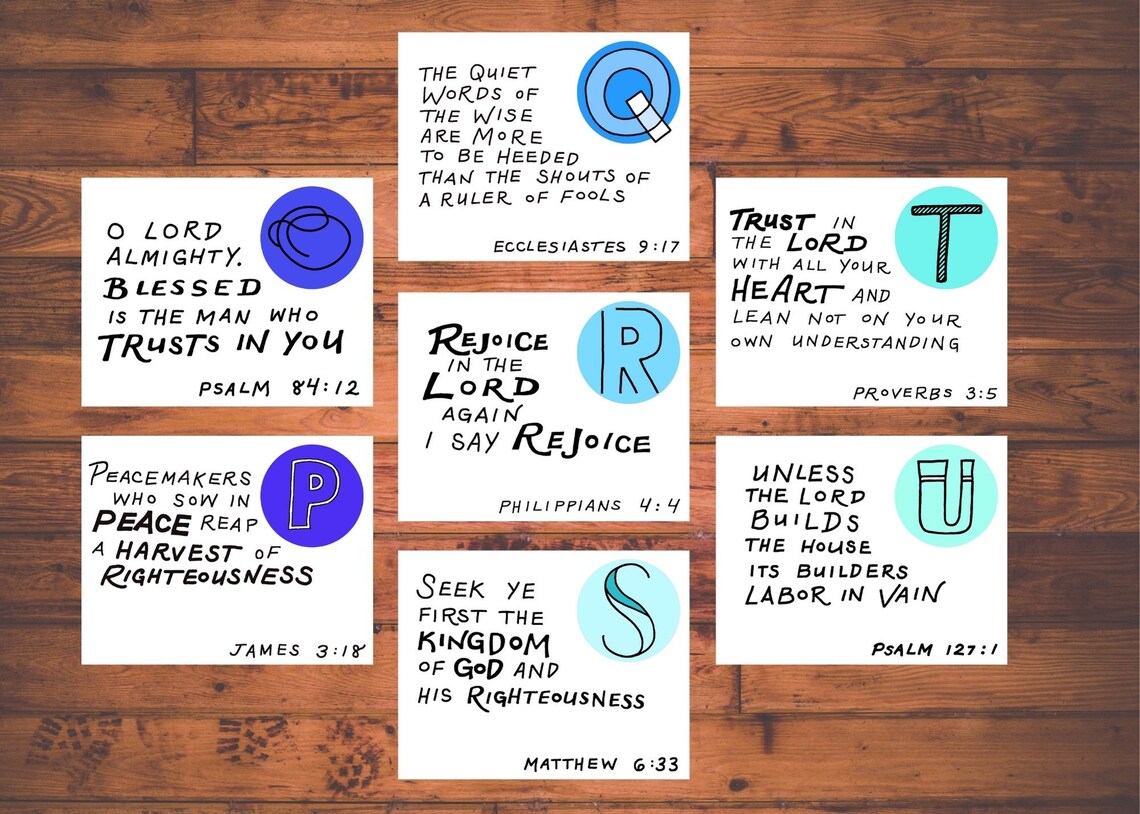 O LORD
ALMIGHTY.
BLESSED
IS THE MAN WHO
TRUSTS IN YOU
O
PSALM 84:12
PEACEMAKERS
WHO SOW IN
PEACE REAP
A HARVEST OF
RIGHTEOUSNESS
P
JAMES 3:18
THE QUIET
WORDS OF
THE WISE
ARE MORE
TO BE HEEDED
THAN THE SHOUTS OF
A RULER OF FOOLS
Q
ECCLESIASTES 9:17
REJOICE
IN THE
LORD
AGAIN
I SAY REJOICE
R
PHILIPPIANS 4:4
SEEK YE
FIRST THE
KINGDOM
OF GOD AND
HIS RIGHTEOUSNESS
S
MATTHEW 6:33
TRUST IN
THE LORD
WITH ALL YOUR
HEART AND
LEAN NOT ON YOUR
OWN UNDERSTANDING
T
PROVERBS 3:5
UNLESS
THE LORD
BUILDS
THE HOUSE
ITS BUILDERS
LABOR IN VAIN
U
PSALM 127:1